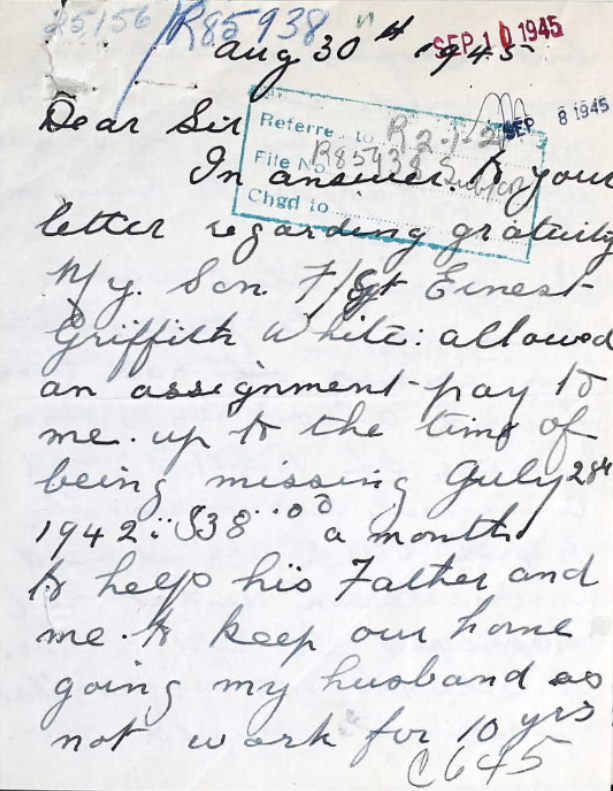 25156 R85938
Aug 30th 1945
SEP 10 1945
SEP 8 1945
Dear Sir
Referred to R2-1-2
File No R85938
Chgd to
In answer to your
letter regarding gratuity
My. Son. F/Sgt Ernest
Griffith White: allowed
an assignment-pay to
me. up to the time of
being missing July 28th
1942: $38.00 a month
to help his Father and
me. to keep our home
going my husband as
not work for 10 yrs
C645